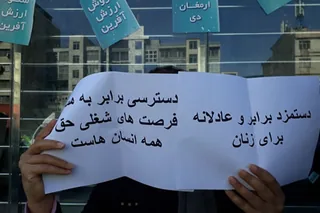 ارزش
آفرین
ارزش
آفرین
ارمغان
دی
دستمزد برابر و عادلانه
برای زنان
دسترسی برابر به
فرصت های شغلی حق
همه انسان هاست